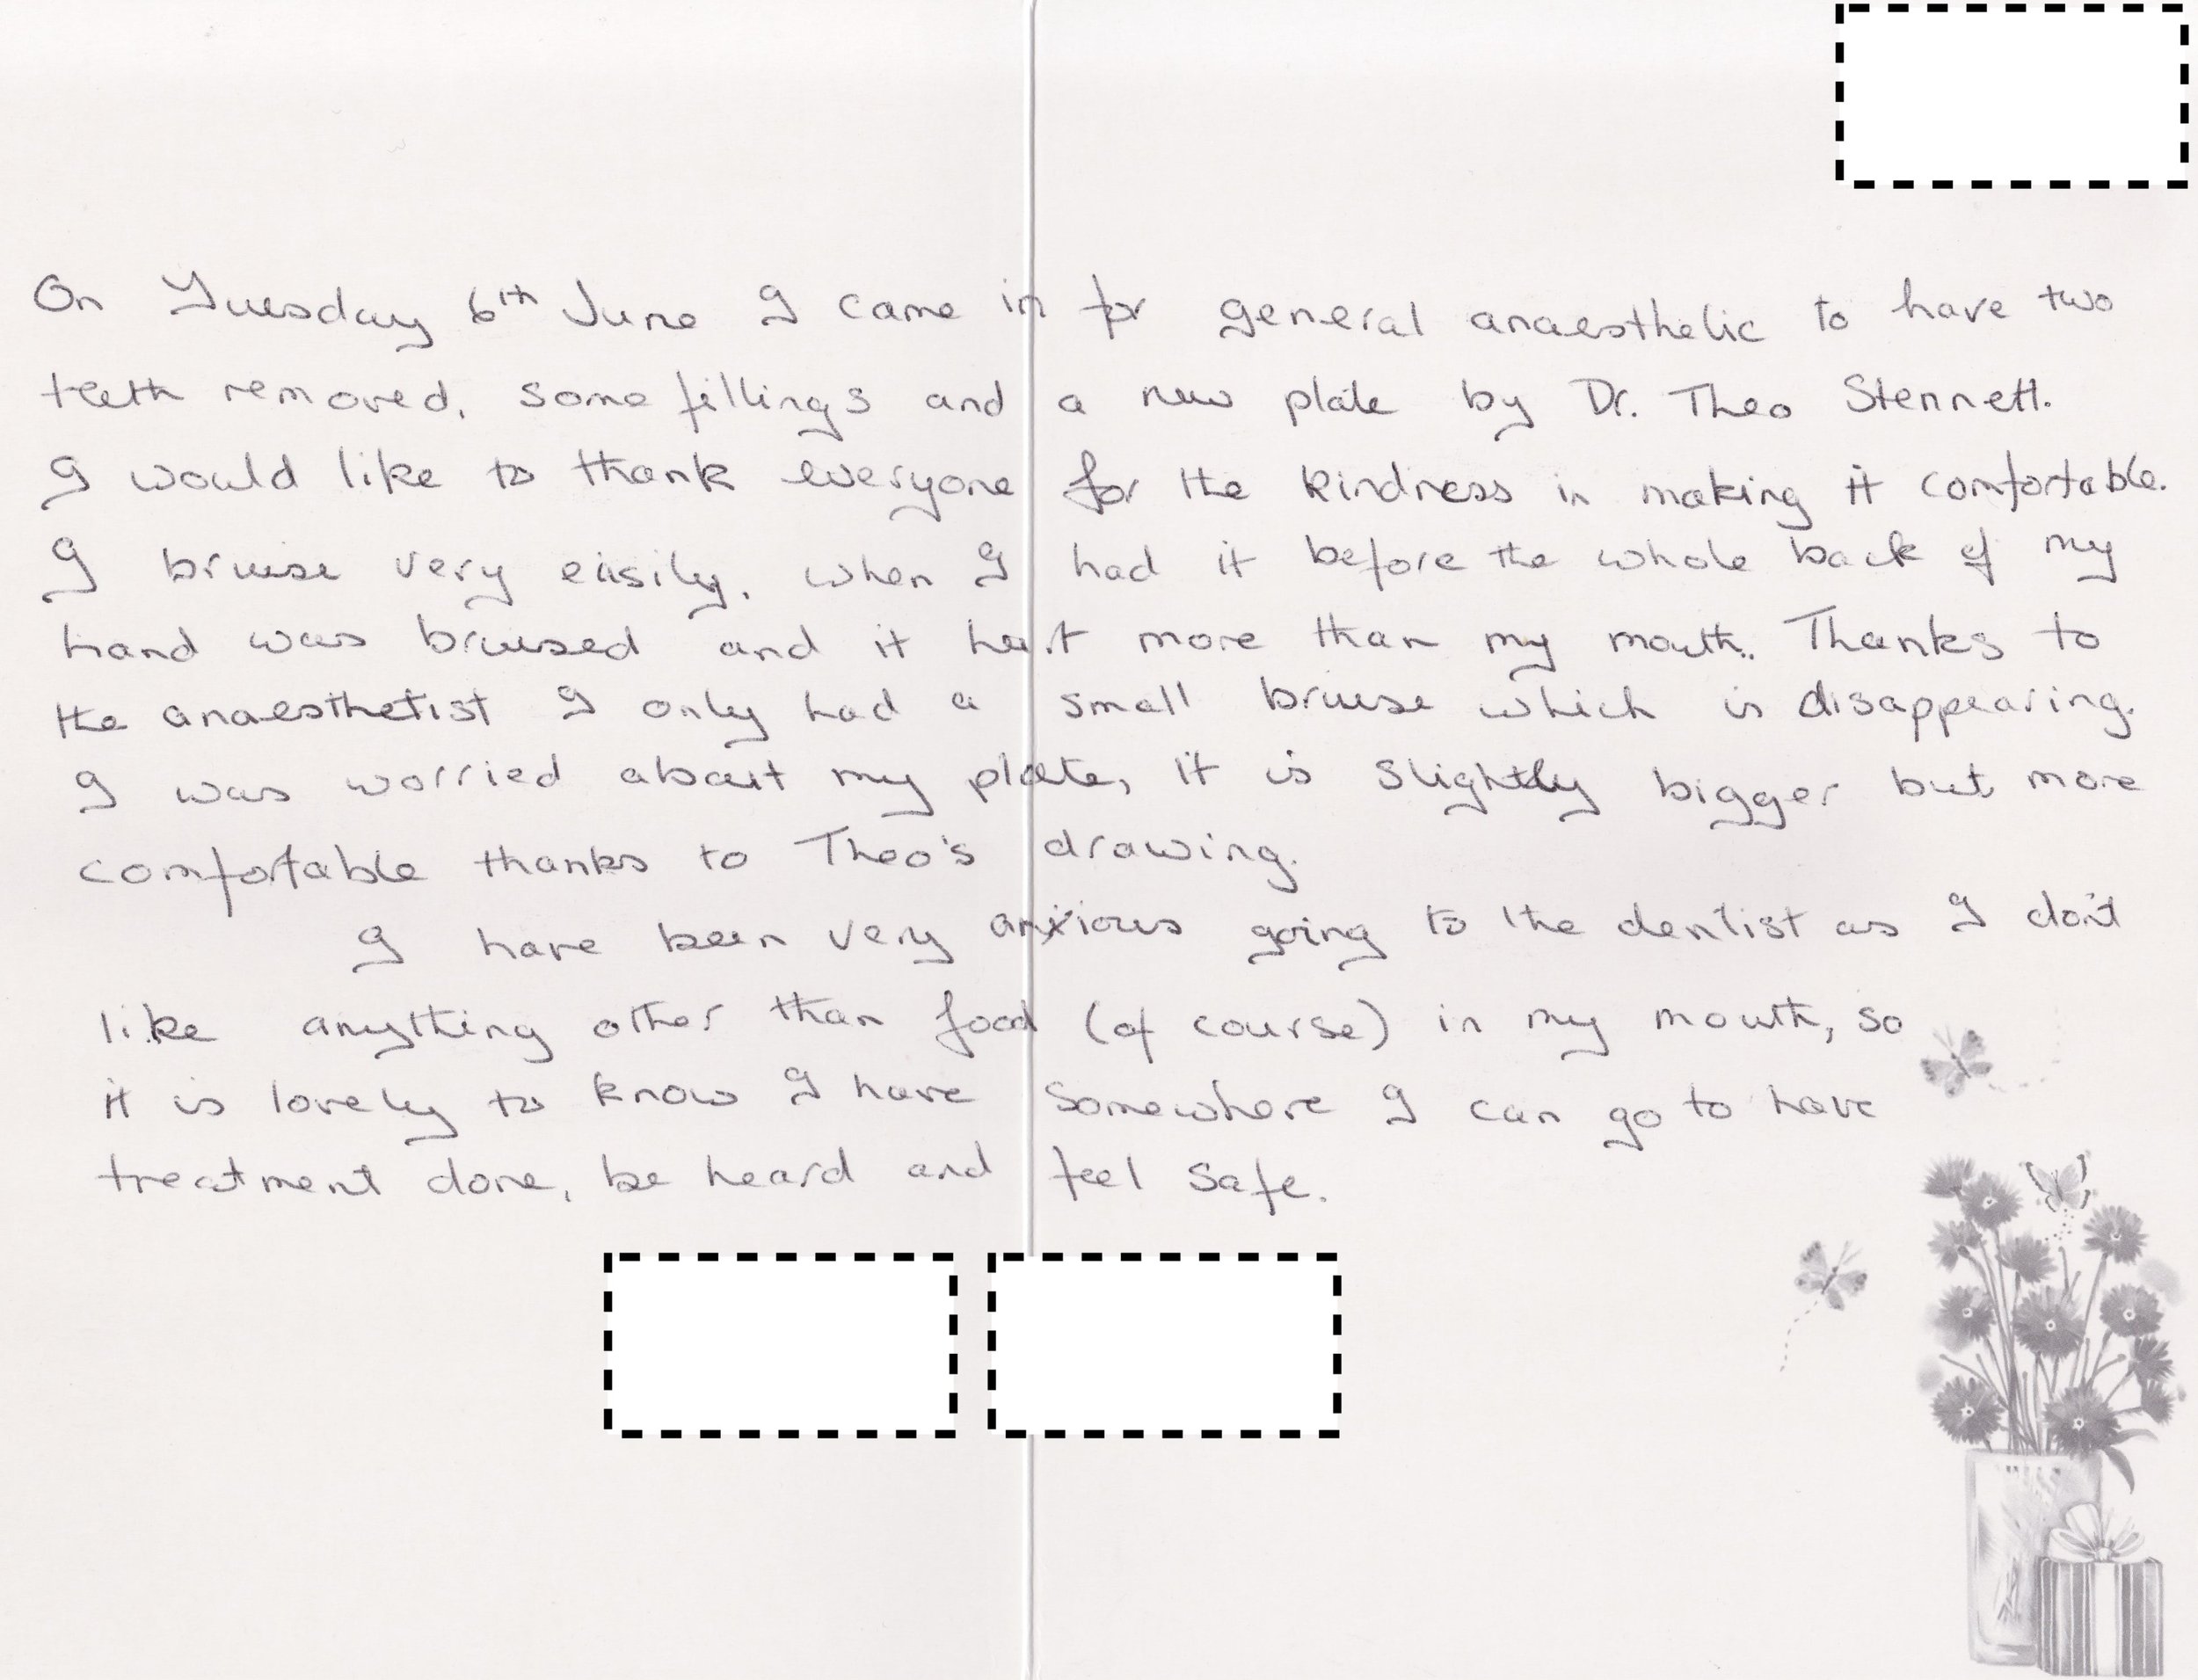 On Tuesday 6th June I came in for general anaesthetic to have two
teeth removed, some fillings and a new plate by Dr. Theo Stennett.
I would like to thank everyone for the kindness in making it comfortable.
I bruise very easily, when I had it before the whole back of my
hand was bruised and it hurt more than my mouth. Thanks to
the anaesthetist I only had a small bruise which is disappearing.
I was worried about my plate, it is slightly bigger but more
comfortable thanks to Theo's drawing.
I have been very anxious going to the dentist as I don't
like anything other than food (of course) in my mouth, so
it is lovely to know I have somewhere I can go to have
treatment done, be heard and feel safe.